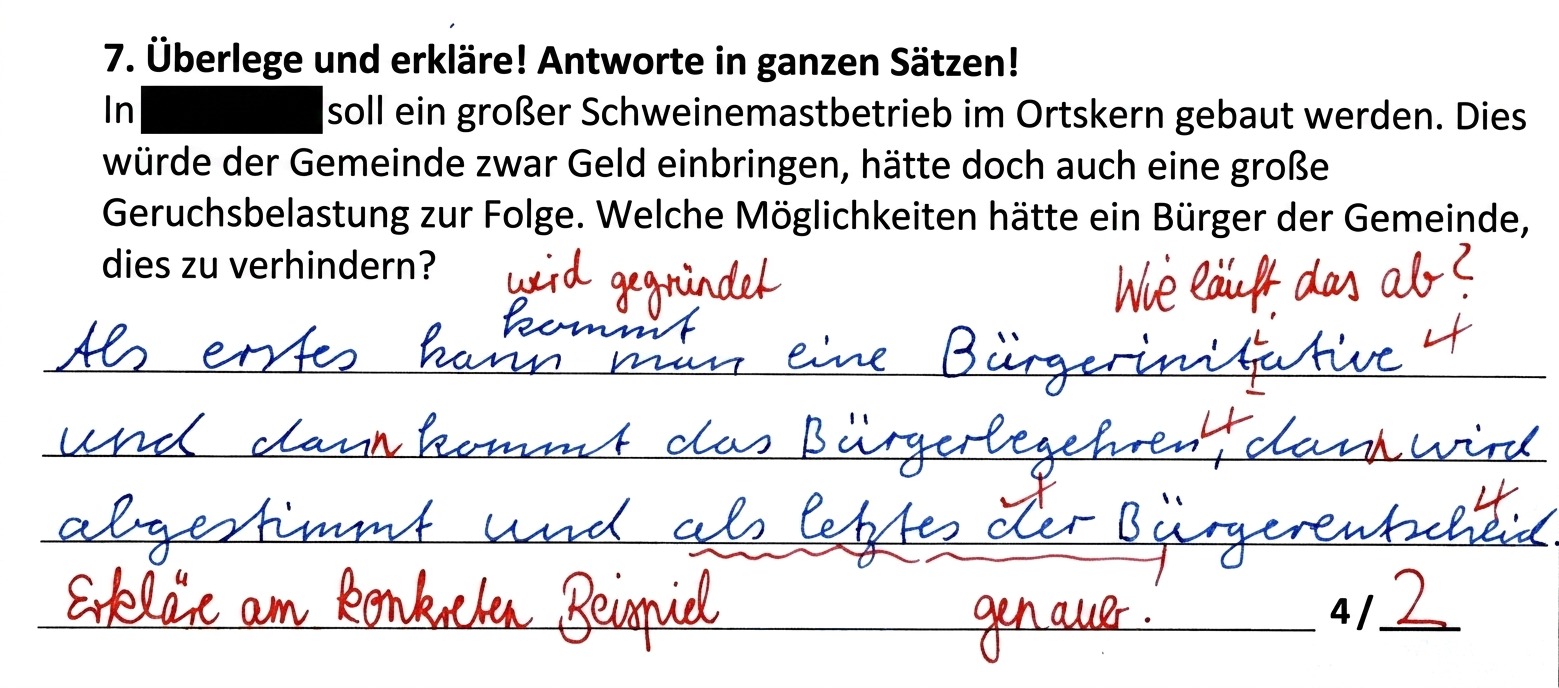 7. Überlege und erkläre! Antworte in ganzen Sätzen!
In soll ein großer Schweinemastbetrieb im Ortskern gebaut werden. Dies
würde der Gemeinde zwar Geld einbringen, hätte doch auch eine große
Geruchsbelastung zur Folge. Welche Möglichkeiten hätte ein Bürger der Gemeinde,
dies zu verhindern?
wird gegründet Wie läuft das ab?
kommt
Als erstes kann man eine Bürgerinitative
und dann kommt das Bürgerbegehren, dann wird
abgestimmt und als letztes der Bürgerentscheid.
Erkläre am konkreten Beispiel genauer! 4/2